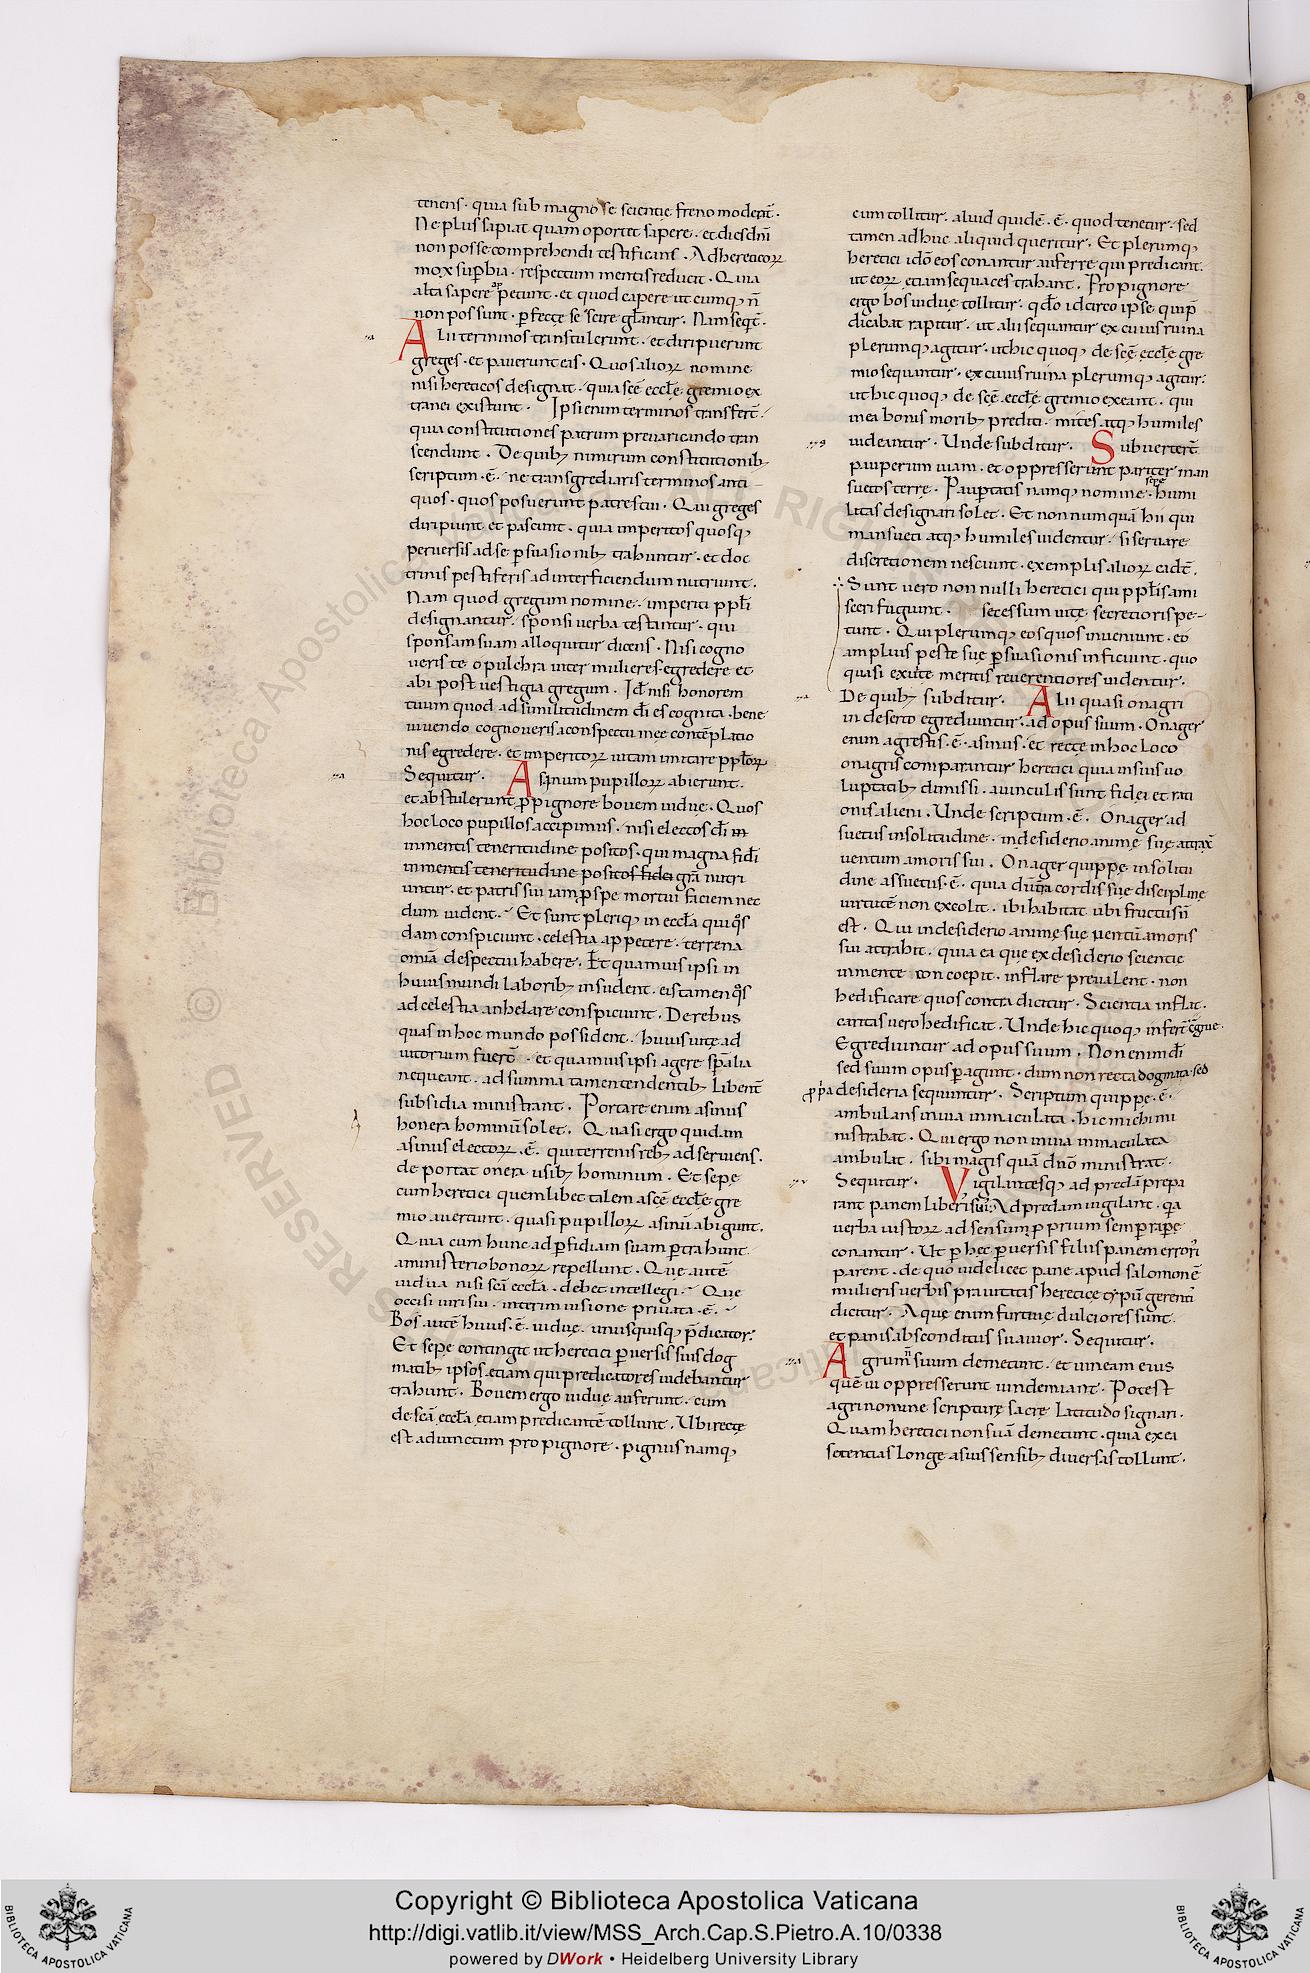 tenens. quia sub magno se scientie freno moderant̄.
Ne plus sapiat quam oportet sapere. et dies dn̄i
non posse comprehendi testificant̄. Ad hereticoꝝ
mox suꝑbia. respectum mentis reducit. Quia
alta sapere appetunt. et quod capere ut cumq; n̄
non possunt. ꝑfecte se scire gl̄antur. Nam seqt̄.
Alii terminos transtulerunt. et diripuerunt
greges. et paverunt eis. Quos alioꝝ nomine
nisi hereticos designat. quia scē eccl̄e gremio ex
tranei existunt. Ipsi enim terminos transfert̄.
quia constitutiones patrum prevaricando tran
scendunt. De quib; nimirum constitutionib;
scriptum .ē. ne transgrediaris terminos anti
quos. quos posuerunt patres tui. Qui greges
diripiunt et pascunt. quia imperitos quosq;
perversis ad se ꝑsuasionib; trahuntur. et doc
trinis pestiferis ad interficiendum nutriunt.
Nam quod gregum nomine. imperiti ppl̄i
designantur. sponsi verba testantur. qui
sponsam suam alloquitur dicens. Nisi cogno
veris te o pulchra inter mulieres. egredere et
abi post vestigia gregum. Id̄ nisi honorem
tuum quod ad similitudinem d̄i es cognita. bene
vivendo cognoveris a conspectu mee contēplatio
nis egredere. et imperitoꝝ vitam imitare ppl̄oꝝ
Sequitur. Asinum pupilloꝝ abierunt.
et abstulerunt ꝓ pignore bovem vidue. Quos
hoc loco pupillos accipimus. nisi electos d̄i in
in mentis teneritudine positos. qui magna fidi
in mentis teneritudine positos fidei grā nutri
untur. et patris sui iam ꝓ spe mortui faciem nec
dum vident. Et sunt pleriq; in eccl̄a qui qs̄
dam conspiciunt. celestia appetere. terrena
omīa despectui habere. Et quamvis ipsi in
huius mundi laborib; insudent. eis tamen qs̄
ad celestia anhelare conspiciunt. De rebus
quas in hoc mundo possident. huius vitę ad
iutorium fuert̄. et quamvis ipsi agere sp̄alia
nequeant. ad summa tamen tendentib; libent̄
subsidia ministrant. Portare enim asinus
honera hominū solet. Quasi ergo quidam
asinus electoꝝ .ē. qui terrenis reb; ad serviens.
de portat onera usib; hominum. Et sepe
cum heretici quemlibet talem a scē eccl̄e gre
mio avertunt. quasi pupilloꝝ asinū abigunt.
Quia cum hunc ad ꝑfidiam suam ꝑtrahunt.
a ministerio bonoꝝ repellunt. Que autē
vidua nisi scā eccl̄a. debet intellegi. Que
occisi viri sui. interim visione privata .ē.
Bos autē huius .ē. vidue. unusquisq; p̄dicator.
Et sepe contingit ut heretici ꝑversis suis dog
matib; ipsos etiam qui predicatores videbantur
trahunt. Bovem ergo vidue auferunt. cum
de scā eccl̄a etiam predicantē tollunt. Ubi recte
est adiunctum pro pignore. pignus namq;
cum tollitur. aliud quidē .ē. quod tenetur. sed
tamen adhuc aliquid queritur. Et plerumq;
heretici idō eos conantur auferre qui predicant.
ut eoꝝ etiam sequaces trahant. Pro pignore
ergo bos vidue tollitur. qd̄o idcirco ipse qui p̄
dicabat rapitur. ut alii sequantur ex cuius ruina
plerumq; agitur. ut hic quoq; de scē eccl̄e gre
mio sequantur. ex cuius ruina plerumq; agitur.
ut hic quoq; de scē eccl̄e gremio exeant. qui
in ea bonis morib; prediti. mites atq; humiles
videantur. Unde subditur. Subvertert̄
pauperum viam. et oppresserunt pariter man
suetos terre. Pauꝑtatis namq; nomine. sepe humi
litas designari solet. Et non numquā hii qui
mansueti atq; humiles videntur. si servare
discretionem nesciunt. exemplis alioꝝ cadt̄.
Sunt vero non nulli heretici qui ppl̄is ami
sceri fugiunt. secessum vite secretioris pe-
tunt. Qui plerumq; eos quos inveniunt. eo
amplius peste sue ꝑsuasionis inficiunt. quo
quasi ex vite meritis reverentiores videntur.
De quib; subditur. Alii quasi onagri
in deserto egrediuntur. ad opus suum. Onager
enim agrestis .ē. asinus. et recte in hoc loco
onagris comparantur heretici quia in suis vo
luptatib; dimissi. a vinculis sunt fidei et rati
onis alieni. Unde scriptum .ē. Onager ad
suetus in solitudine. in desiderio anime sue attrax̄
ventum amoris sui. Onager quippe in solitu
dine assuetus .ē. quia dū t̄ra cordis sue discipline
virtutē non excolit. ibi habitat ubi fructus n̄
est. Qui in desiderio anime sue ventū amoris
sui attrahit. quia ea que ex desiderio scientie
in mente concepit. inflare prevalent. non
hedificare quos contra dicitur. Scientia inflat.
caritas vero hedificat. Unde hic quoq; infert̄ congrue.
Egrediuntur ad opus suum. Non enim d̄i
sed suum opus ꝑagunt. dum non recta dogmata. sed
ꝓp̄a desideria sequuntur. Scriptum quippe .ē.
ambulans in via inmaculata. hic michi mi
nistrabat. Qui ergo non in via inmaculata
ambulat. sibi magis quā dn̄o ministrat.
Sequitur. Vigilantesq; ad predā prepa
rant panem liberis suis. Ad predam vigilant. qa
verba iustoꝝ ad sensum ꝓprium semper raꝑe
conantur. Ut ꝑ hec ꝑversis filiis panem errori
parent. de quo videlicet pane apud salomonē
mulieris verbis pravitatis heretice typū gerenti
dicitur. Aque enim furtive dulciores sunt.
et panis absconditus suavior. Sequitur.
Agrum n̄ suum demetunt. et vineam eius
quē vi oppresserunt vindemiant. Potest
agri nomine scripture sacre latitudo signari.
Quam heretici non suā demetunt. quia ex ei
sententias longe a suis sensib; diversas tollunt.
Copyright © Biblioteca Apostolica Vaticana
http://digi.vatlib.it/view/MSS_Arch.Cap.S.Pietro.A.10/0338
powered by DWork • Heidelberg University Library
BIBLIOTECA APOSTOLICA VATICANA
BIBLIOTECA APOSTOLICA VATICANA